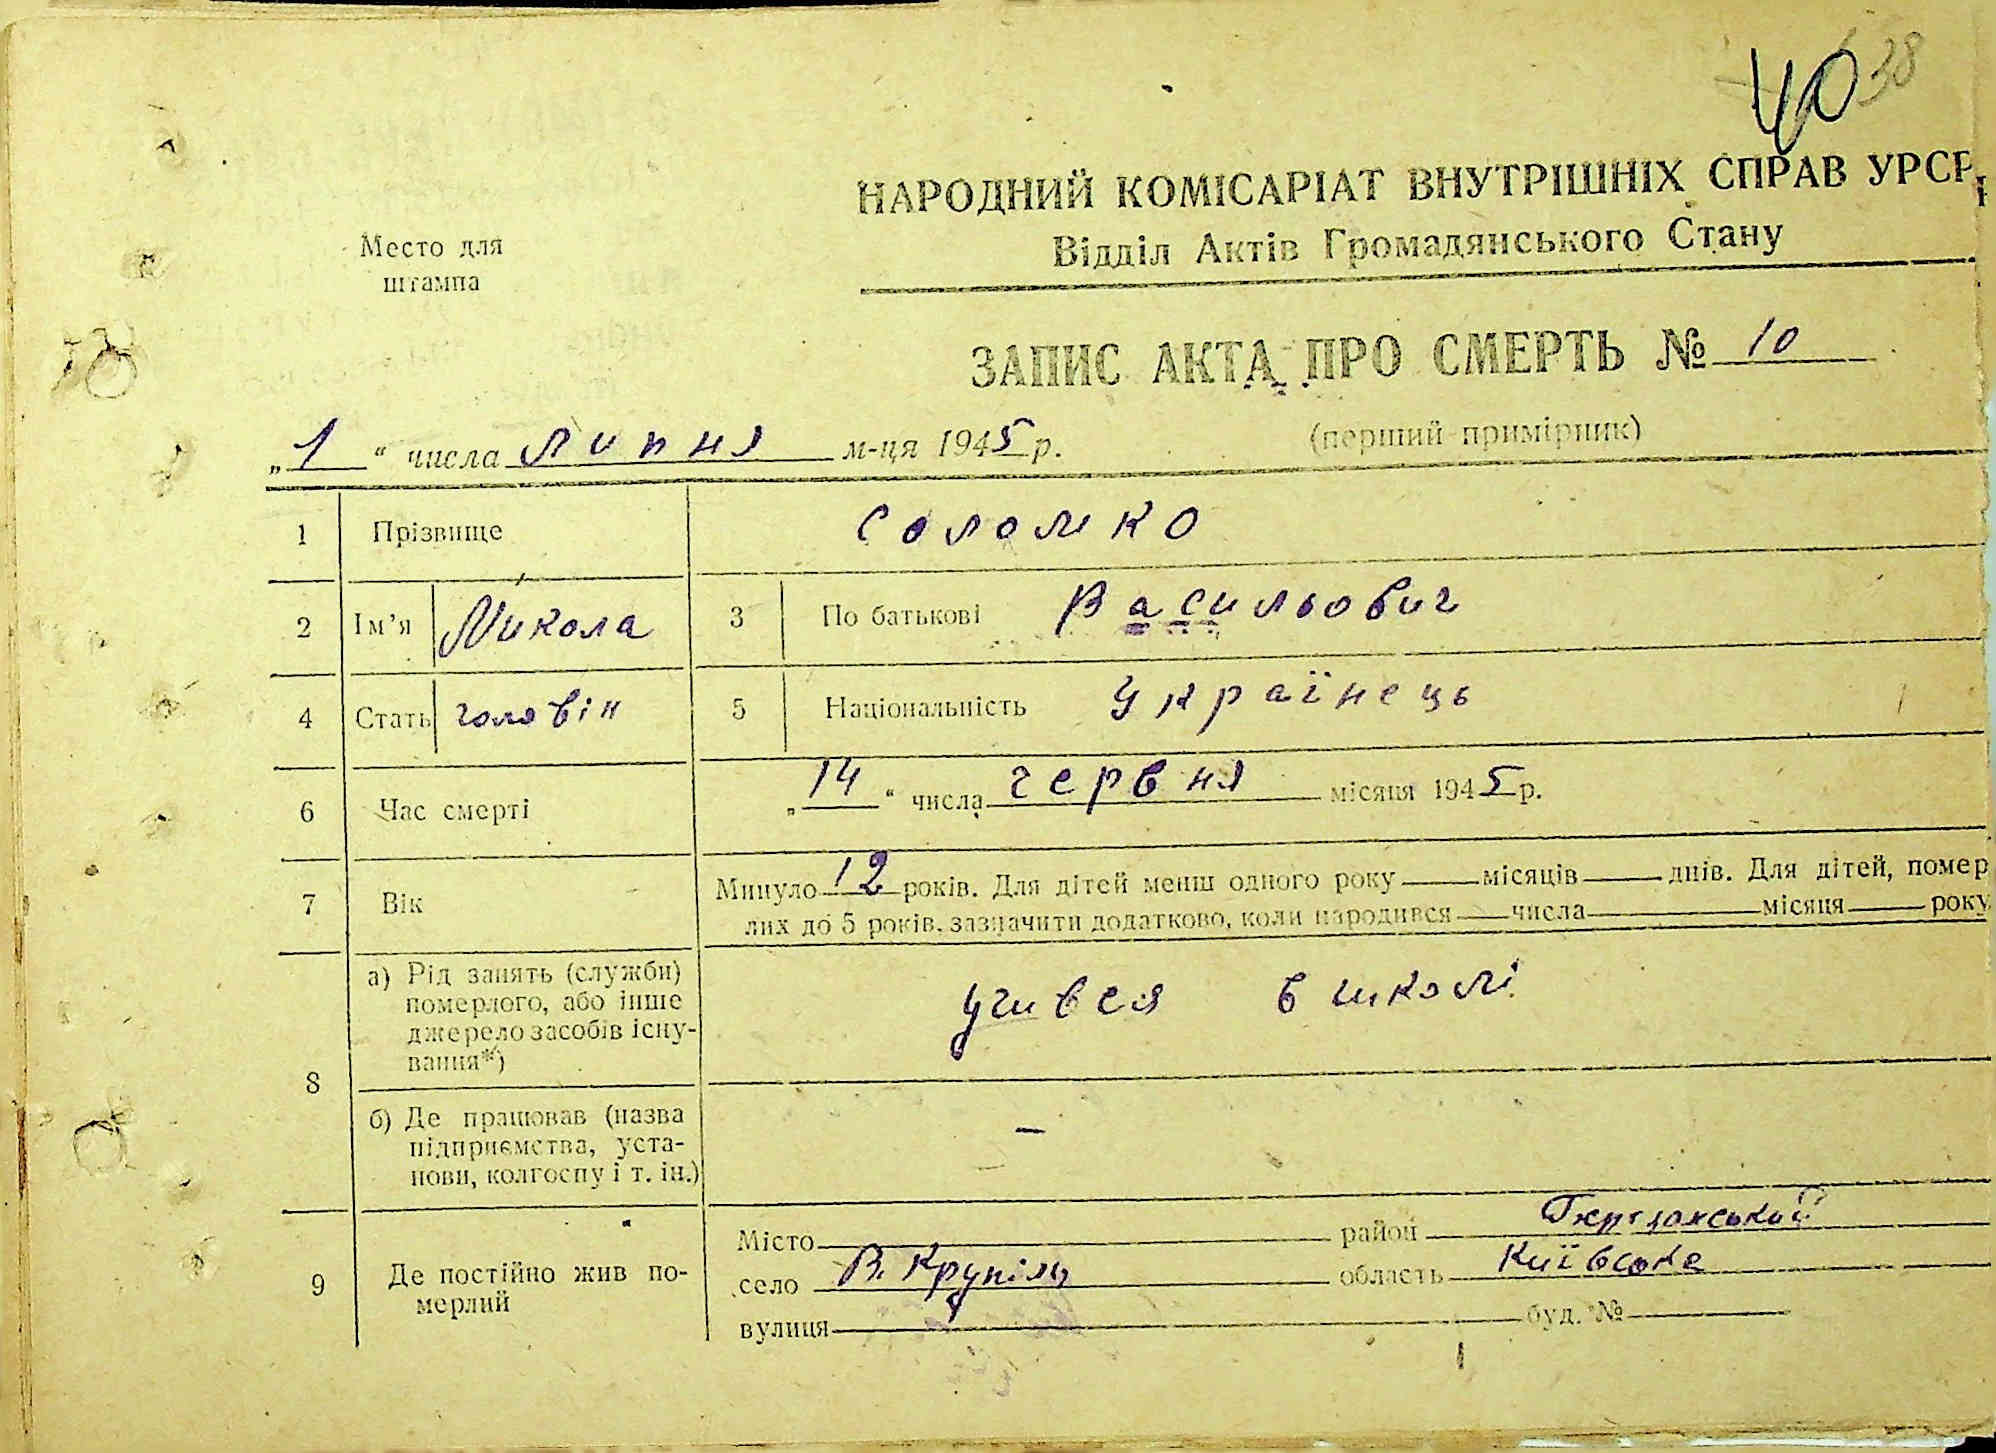 40 38
НАРОДНИЙ КОМІСАРІАТ ВНУТРІШНІХ СПРАВ УРСР
Відділ Актів Громадянського Стану
Место для
штампа
ЗАПИС АКТА ПРО СМЕРТЬ № 10
(перший примірник)
„1“ числа липня м-ця 1945 р.
1 Прізвище Соломко
2 Ім’я Микола 3 По батькові Васильович
4 Стать чоловін 5 Національність Українець
6 Час смерті „14“ числа червня місяця 1945 р.
7 Вік Минуло 12 років. Для дітей менш одного року місяців днів. Для дітей, помер
лих до 5 років, зазначити додатково, коли народився числа місяця року
8 а) Рід занять (служби)
померлого, або інше
джерело засобів існу-
вання*)
учився в школі
б) Де працював (назва
підприємства, уста-
нови, колгоспу і т. ін.)
—
9 Де постійно жив по-
мерлий
Місто район
село В. Крупіль область Київська
вулиця буд. №